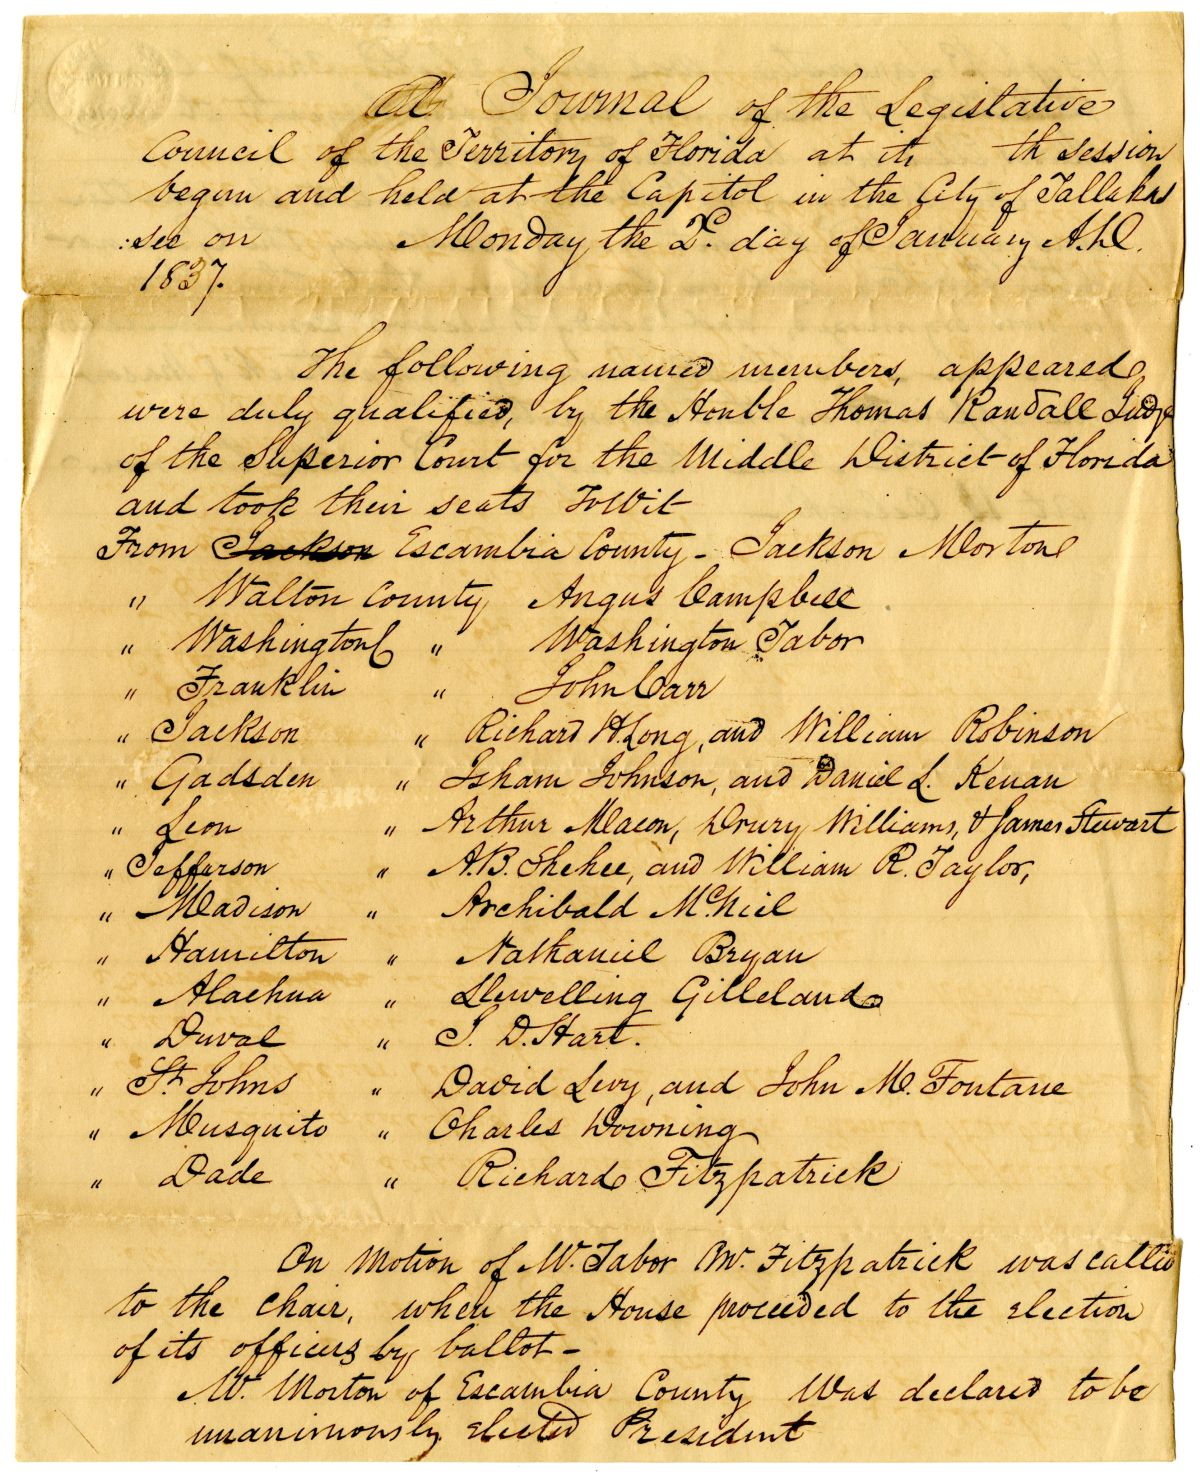 A Journal of the Legislative
Council of the Territory of Florida at its th session
begun and held at the Capitol in the City of Tallahas
:see on Monday the 2d. day of January A.D.
1837.
The following named members, appeared
were duly qualified, by the Honble Thomas Randall Judge
of the Superior Court for the Middle District of Florida
and took their seats To Wit
From Jackson Escambia County - Jackson Morton
" Walton County Angus Campbell
" Washington C " Washington Tabor
" Franklin " John Carr
" Jackson " Richard H. Long, and William Robinson
" Gadsden " Isham Johnson, and Daniel L. Kenan
" Leon " Arthur Macon, Drury Williams, & James Stewart
" Jefferson " A.B. Shehee, and William R. Taylor,
" Madison " Archibald McNiel
" Hamilton " Nathaniel Bryan
" Alachua " Llewelling Gilleland
" Duval " I. D. Hart.
" St. Johns " David Levy, and John M. Fontane
" Musquito " Charles Downing
" Dade " Richard Fitzpatrick
On Motion of Mr. Tabor Mr. Fitzpatrick was called
to the Chair, when the House proceeded to the election
of its officers by ballot -
Mr. Morton of Escambia County Was declared to be
unanimously elected President